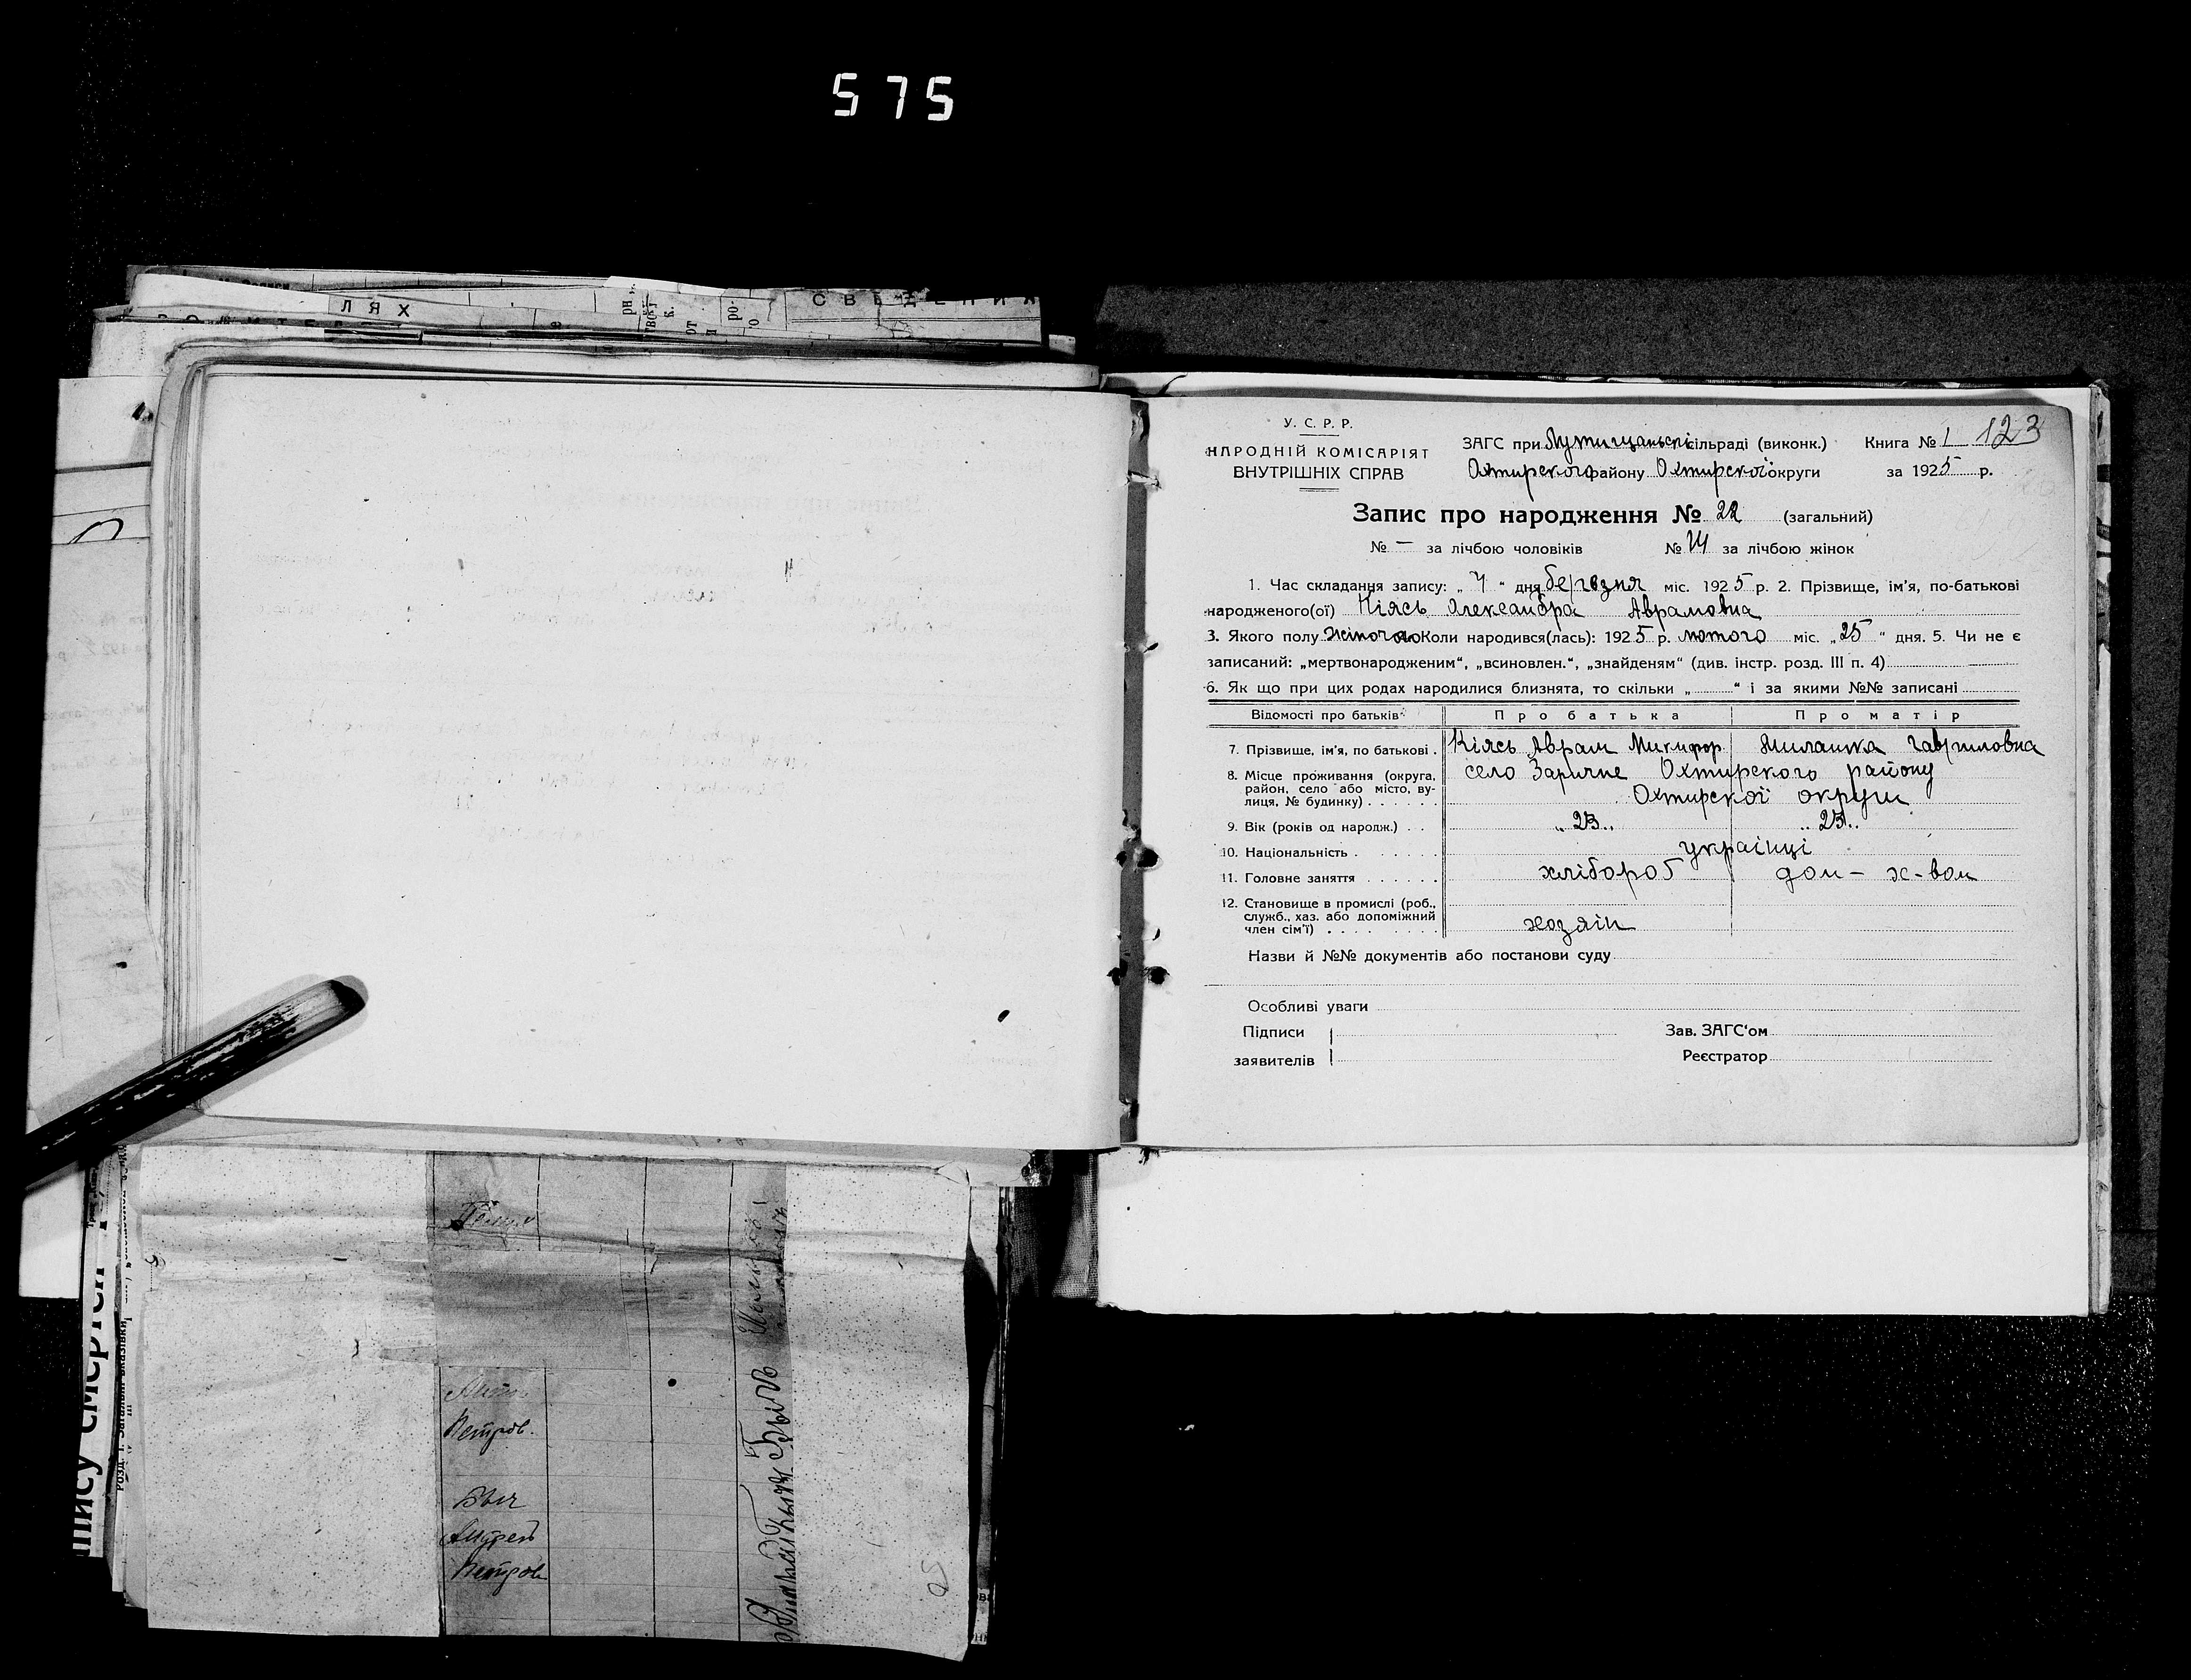 575
ЛЯХ
У. С. Р. Р.
НАРОДНІЙ КОМІСАРІЯТ
ВНУТРІШНІХ СПРАВ
ЗАГС при Лутищанські сільраді (виконк.) Книга № 1 123
Охтирского району Охтирскої округи за 1925 р.
Запис про народження № 22 (загальний)
№ — за лічбою чоловіків № 14 за лічбою жінок
1. Час складання запису: „ 4 “ дня березня міс. 1925 р. 2. Прізвище, ім'я, по-батькові
народженого(ої) Кіясь Олександра Аврамовна
3. Якого полу жіночого Коли народився(лась): 1925 р. лютого міс. „25“ дня. 5. Чи не є
записаний: „мертвонародженим“, „всиновлен.“, „знайденям“ (див. інстр. розд. III п. 4)
6. Як що при цих родах народилися близнята, то скільки „ “ і за якими №№ записані
Відомості про батьків Про батька Про матір
7. Прізвище, ім'я, по батькові . Кіясь Аврам Микифор. Милашка Гавриловна
8. Місце проживання (округа, район, село або місто, вулиця, № будинку) . . . . . . село Заричне Охтирского району
Охтирскої округи
9. Вік (років од народж.) . . „23„ „23„
10. Національність . . . . . . українці
11. Головне заняття . . . . . . хлібороб дом- х-вом
12. Становище в промислі (роб.,
служб., хаз. або допоміжний
член сім'ї) . . . . . . . . хозяїн
Назви й №№ документів або постанови суду
Особливі уваги
Підписи Зав. ЗАГС'ом
заявителів Реєстратор
Петров.
Андрей
Петров